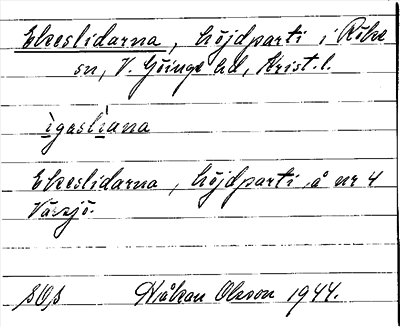 Ekeslidarna, höjdparti i Röke
sn, V. Göinge hd, Krist. l.
ìgaslìana
Ekeslidarna, höjdparti å nr 4
Varsjö.
SOS Håkan Olsson 1944.